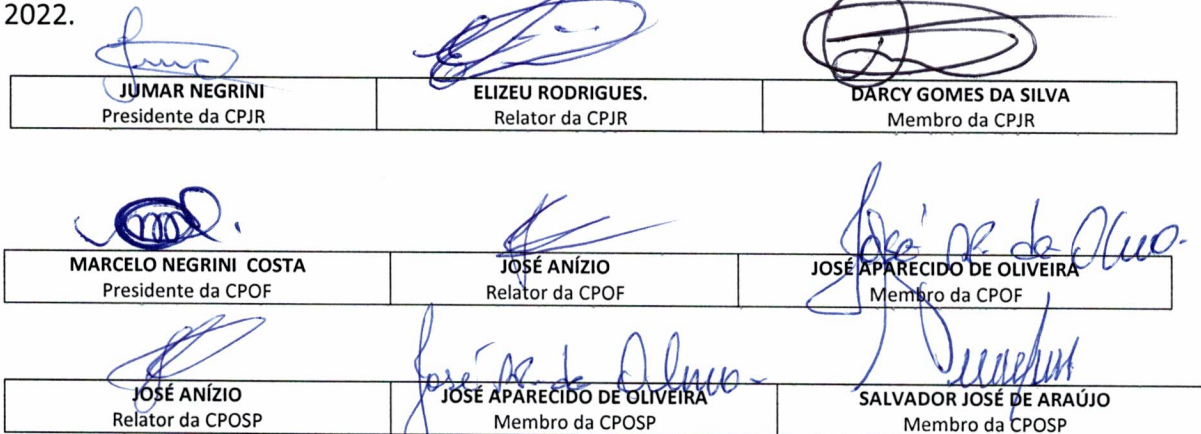 2022.
JUMAR NEGRINI
Presidente da CPJR
ELIZEU RODRIGUES.
Relator da CPJR
DARCY GOMES DA SILVA
Membro da CPJR
MARCELO NEGRINI COSTA
Presidente da CPOF
JOSÉ ANÍZIO
Relator da CPOF
José Ap. de Oliv.
JOSÉ APARECIDO DE OLIVEIRA
Membro da CPOF
JOSÉ ANÍZIO
Relator da CPOSP
José Ap. de
JOSÉ APARECIDO DE OLIVEIRA
Membro da CPOSP
SALVADOR JOSÉ DE ARAÚJO
Membro da CPOSP